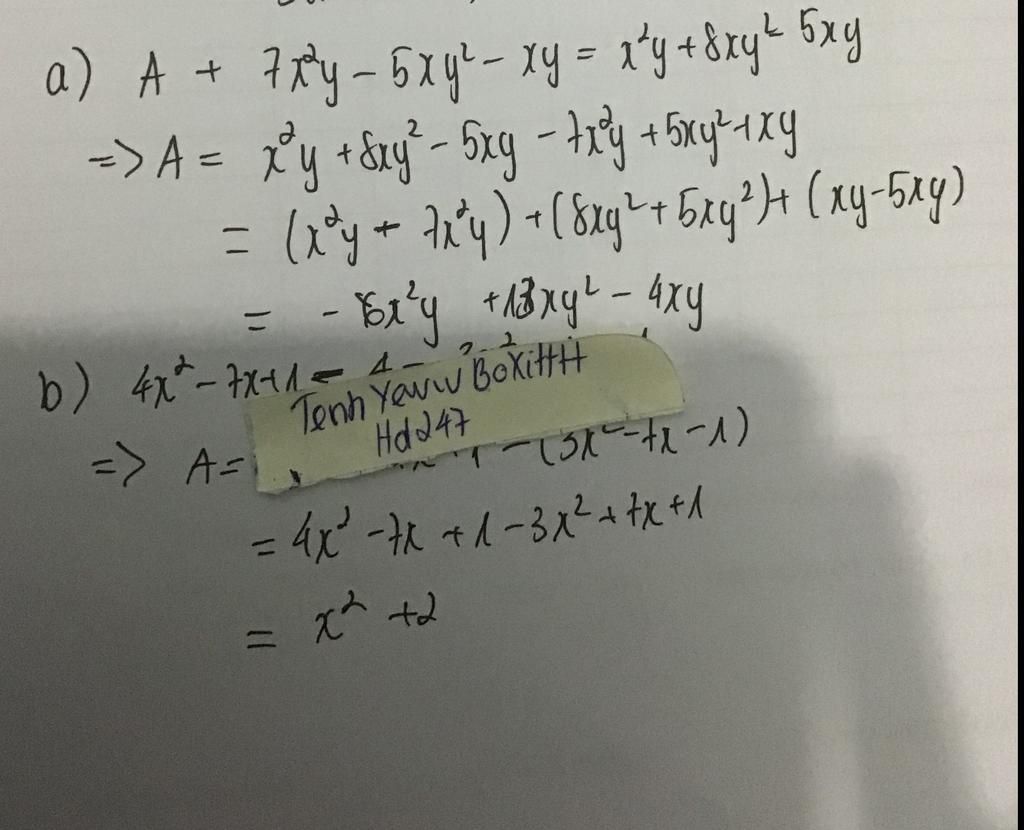 a) A + 7x²y - 5xy² - xy = x²y + 8xy² 5xy
=> A = x²y + 8xy² - 5xy - 7x²y + 5xy² + xy
= (x²y + 7x²y) + (8xy² + 5xy²) + (xy - 5xy)
= - 6x²y + 13xy² - 4xy
b) 4x² - 7x + 1
Tenh Yewww BoXiHH
Hd247
=> A = - (3x² - 7x - 1)
= 4x² - 7x + 1 - 3x² + 7x + 1
= x² + 2